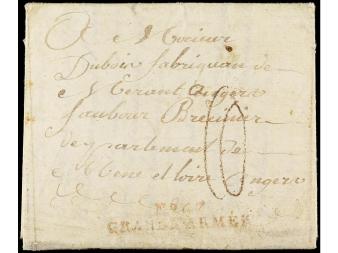 A Mocieur
Dubois fabriquan de
Angers
faubour Brecinier
departement de
Mene et loire Angers
6
GRANDE ARMÉE